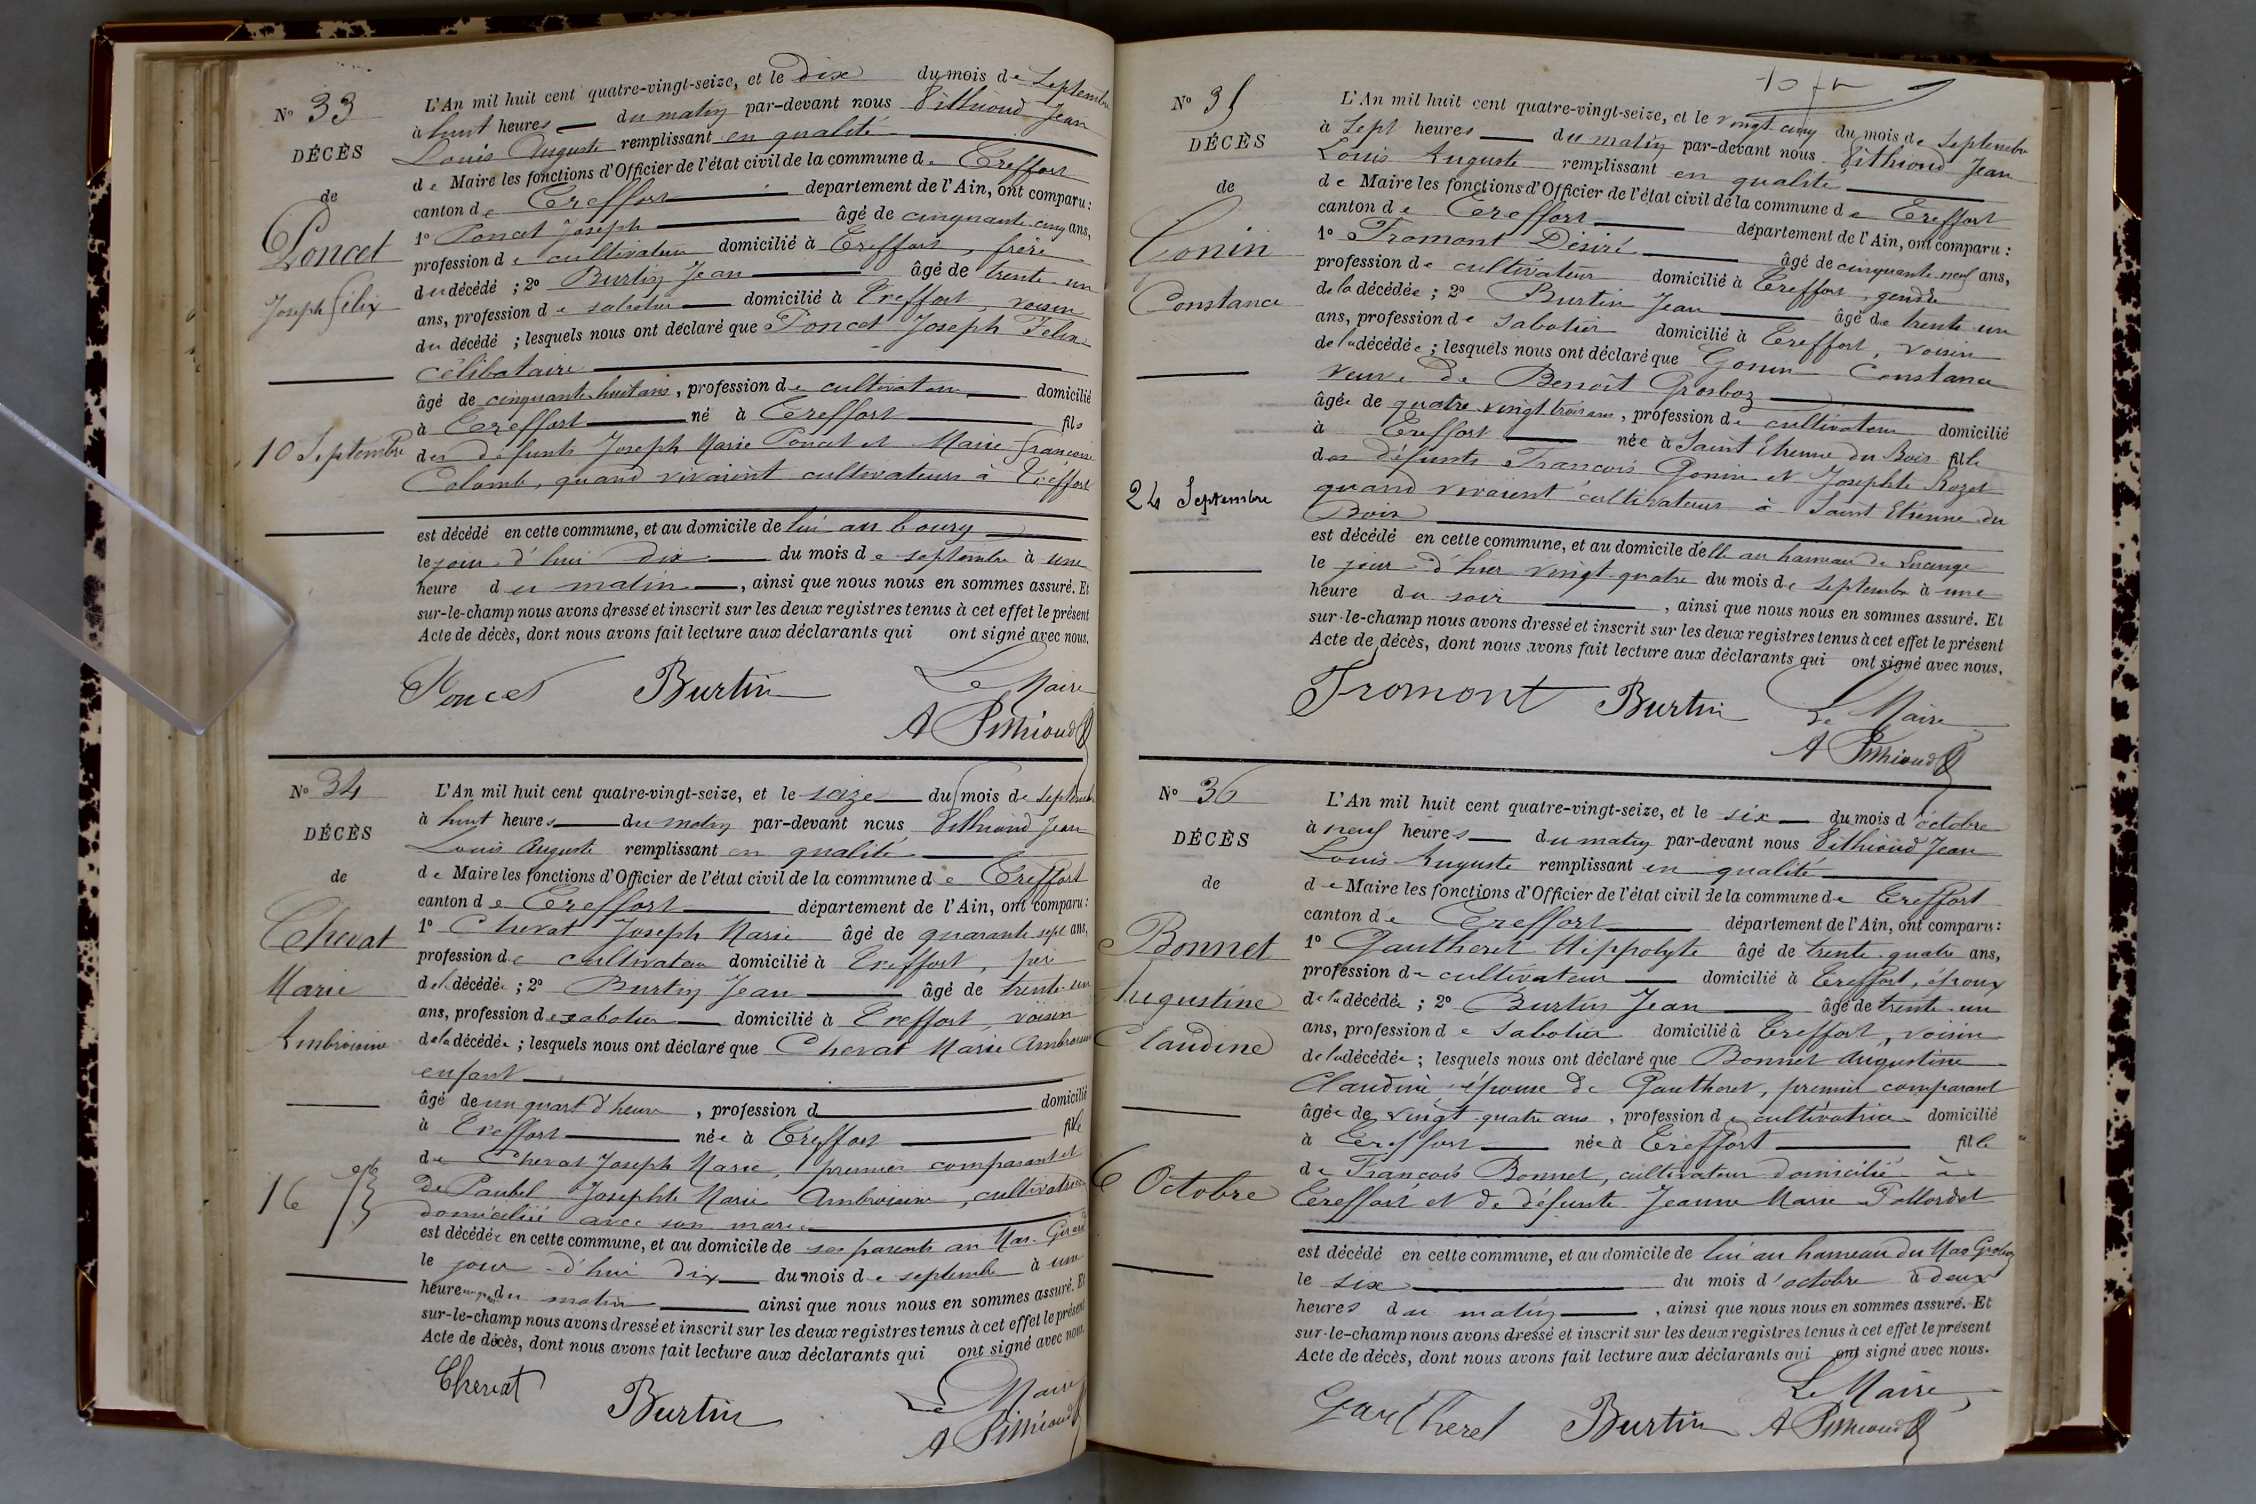 N° 33
DÉCÈS
de
Poncet
Joseph Félix
10 Septembre
L'An mil huit cent quatre-vingt-seize, et le dix du mois de Septembre
à huit heures du matin par-devant nous Pithioud Jean
Louis Auguste remplissant en qualité
de Maire les fonctions d'Officier de l'état civil de la commune de Treffort
canton de Treffort departement de l'Ain, ont comparu :
1° Poncet Joseph âgé de cinquante-cinq ans,
profession de cultivateur domicilié à Treffort, frère
du décédé ; 2° Burtin Jean âgé de trente-un
ans, profession de sabotier domicilié à Treffort, voisin
du décédé ; lesquels nous ont déclaré que Poncet Joseph Felix
célibataire
âgé de cinquante-huit ans, profession de cultivateur domicilié
à Treffort né à Treffort fils
des défunts Joseph Marie Poncet et Marie Françoise
Colomb, quand vivaient cultivateurs à Treffort
est décédé en cette commune, et au domicile de lui au bourg
le jour d'hui dix du mois de septembre à une
heure du matin, ainsi que nous nous en sommes assuré. Et
sur-le-champ nous avons dressé et inscrit sur les deux registres tenus à cet effet le présent
Acte de décès, dont nous avons fait lecture aux déclarants qui ont signé avec nous.
Poncet Burtin Le Maire
A Pithioud
N° 34
DÉCÈS
de
Chevat
Marie
Ambroisine
16 7bre
L'An mil huit cent quatre-vingt-seize, et le seize du mois de septembre
à huit heures du matin par-devant nous Pithioud Jean
Louis Auguste remplissant en qualité
de Maire les fonctions d'Officier de l'état civil de la commune de Treffort
canton de Treffort département de l'Ain, ont comparu :
1° Chevat Joseph Marie âgé de quarante sept ans,
profession de cultivateur domicilié à Treffort, père
de la décédée ; 2° Burtin Jean âgé de trente-un
ans, profession de sabotier domicilié à Treffort, voisin
de la décédée ; lesquels nous ont déclaré que Chevat Marie Ambroisine
enfant
âgé de un quart d'heure, profession d domicilié
à Treffort née à Treffort fille
de Chevat Joseph Marie, premier comparant et
de Paubel Josephte Marie Ambroisine, cultivatrice
domiciliée avec son mari
est décédée en cette commune, et au domicile de ses parents au Mas-Girard
le jour d'hui dix du mois de septembre à une
heure du matin ainsi que nous nous en sommes assuré. Et
sur-le-champ nous avons dressé et inscrit sur les deux registres tenus à cet effet le présent
Acte de décès, dont nous avons fait lecture aux déclarants qui ont signé avec nous.
Chevat Burtin Le Maire
A Pithioud
N° 35
DÉCÈS
de
Gonin
Constance
24 Septembre
L'An mil huit cent quatre-vingt-seize, et le vingt cinq du mois de Septembre
à Sept heures du matin par-devant nous Pithioud Jean
Louis Auguste remplissant en qualité
de Maire les fonctions d'Officier de l'état civil de la commune de Treffort
canton de Treffort département de l'Ain, ont comparu :
1° Fromont Désiré âgé de cinquante-neuf ans,
profession de cultivateur domicilié à Treffort, gendre
de la décédée ; 2° Burtin Jean âgé de trente-un
ans, profession de sabotier domicilié à Treffort, voisin
de la décédée ; lesquels nous ont déclaré que Gonin Constance
veuve de Benoît Grosboz
âgée de quatre vingt trois ans, profession de cultivateur domicilié
à Treffort née à Saint Etienne du Bois fille
des défunts François Gonin et Josephte Rozet
quand vivaient cultivateurs à Saint Etienne du
Bois
est décédé en cette commune, et au domicile d'elle au hameau de Lucange
le jour d'hier vingt-quatre du mois de septembre à une
heure du soir, ainsi que nous nous en sommes assuré. Et
sur-le-champ nous avons dressé et inscrit sur les deux registres tenus à cet effet le présent
Acte de décès, dont nous avons fait lecture aux déclarants qui ont signé avec nous.
Fromont Burtin Le Maire
A Pithioud
N° 36
DÉCÈS
de
Bonnet
Augustine
Claudine
6 Octobre
L'An mil huit cent quatre-vingt-seize, et le six du mois d'octobre
à neuf heures du matin par-devant nous Pithioud Jean
Louis Auguste remplissant en qualité
de Maire les fonctions d'Officier de l'état civil de la commune de Treffort
canton de Treffort département de l'Ain, ont comparu :
1° Gautheret Hippolyte âgé de trente-quatre ans,
profession de cultivateur domicilié à Treffort, époux
de la décédée ; 2° Burtin Jean âgé de trente-un
ans, profession de sabotier domicilié à Treffort, voisin
de la décédée ; lesquels nous ont déclaré que Bonnet Augustine
Claudine épouse de Gautheret, premier comparant
âgée de vingt-quatre ans, profession de cultivatrice domicilié
à Treffort née à Treffort fille
de François Bonnet, cultivateur domicilié à
Treffort et de défunte Jeanne Marie Pallordet
est décédé en cette commune, et au domicile de lui au hameau du Mas Grosboz
le six du mois d'octobre à deux
heures du matin, ainsi que nous nous en sommes assuré. Et
sur-le-champ nous avons dressé et inscrit sur les deux registres tenus à cet effet le présent
Acte de décès, dont nous avons fait lecture aux déclarants qui ont signé avec nous.
Gautheret Burtin Le Maire
A Pithioud